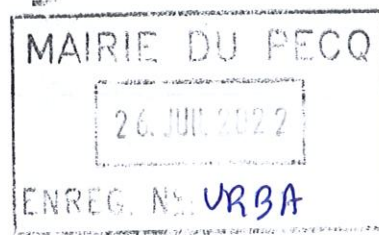 MAIRIE DU PECQ
26. 2022
ENREG. N° URBA